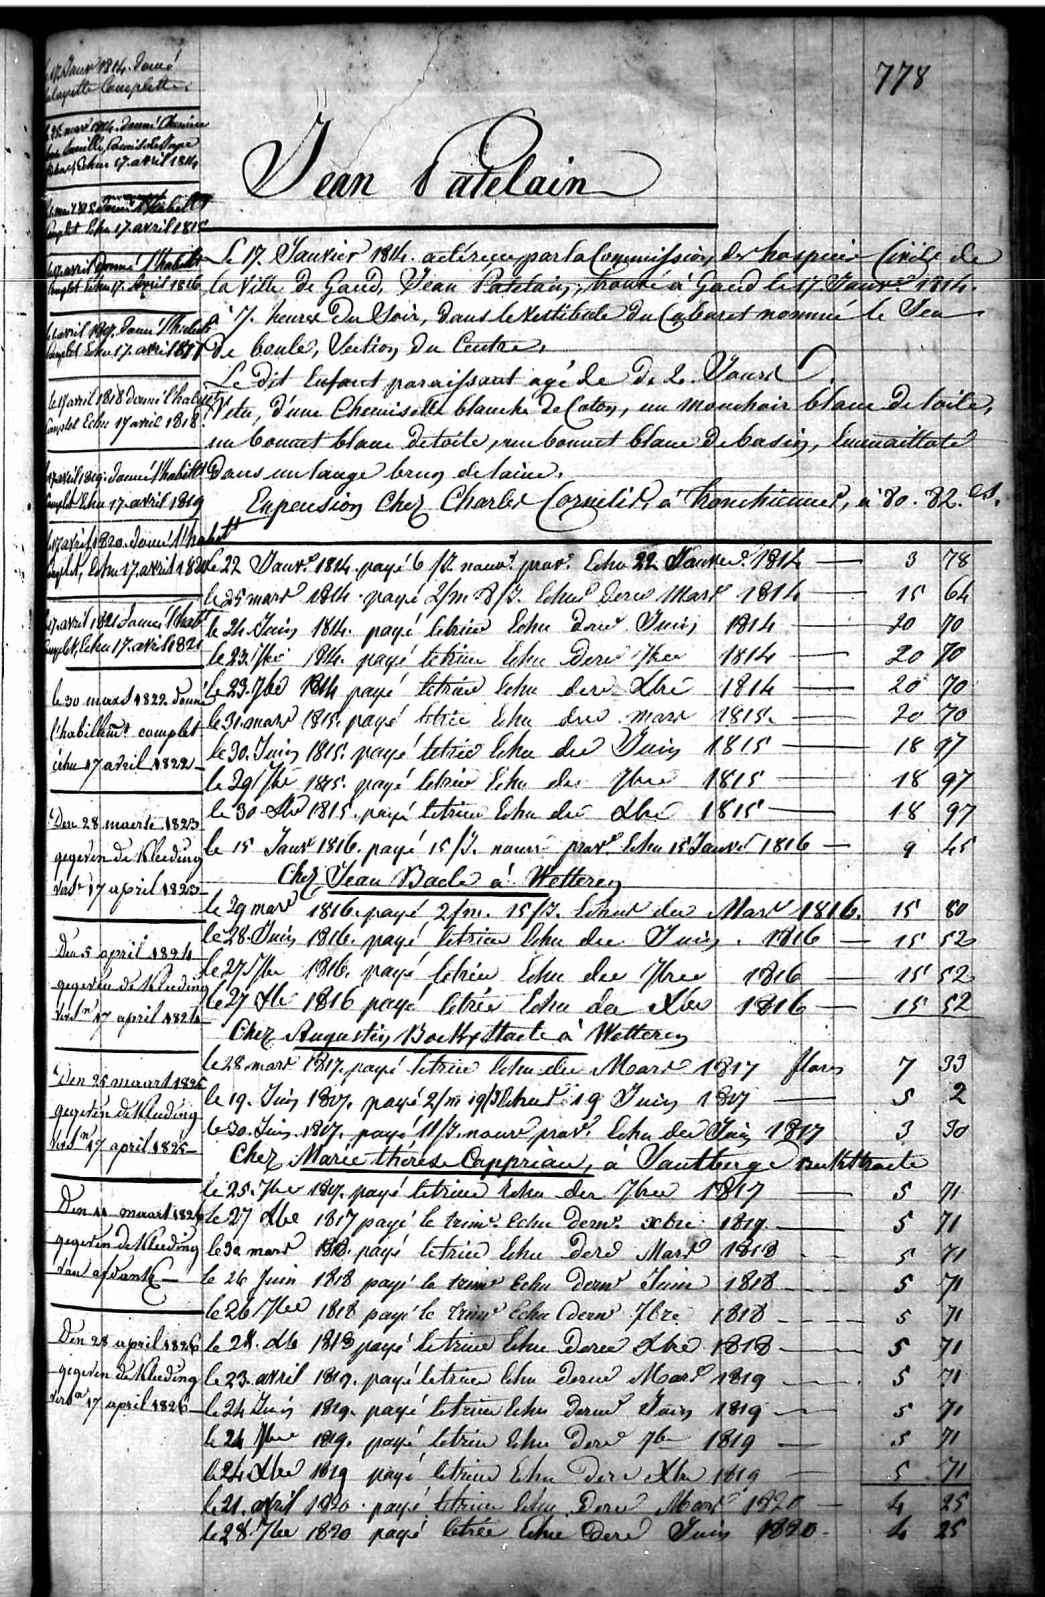 778
Jean Patelain
le 17 Janvier 1814. donné
Layette Complette.
le 25 mars 1814. donné
Echu 17. avril 1814
donné l'habillt
complet Echu 17. avril 1815
le avril donné l'habillt
Complet Echu 17. Avril 1816
le avril 1817. donné l'habillt
Complet Echu 17. avril 1817
le 17 avril 1818 donné l'habillt
Complet Echu 17 avril 1818
le avril 1819. donné l'habillt
Complet Echu 17. avril 1819
le 17 avril 1820. donné l'habillt
Complet, Echu 17. avril 1820
17. avril 1821 donné l'habt
Complet, Echu 17. avril 1821
le 30 mars 1822 donné
l'habillemt complet
échu 17 avril 1822
Den 28 maerte 1823
gegeven de Kleeding
verst 17 april 1823
Den 5 april 1824
gegeven de Kleeding
verst 17 april 1824
Den 25 maart 1825
gegeven de Kleeding
verst 17 april 1825
Den 11 maart 182
gegeven de Kleeding
van afdank
Den 28 april 1826
gegeven de Kleeding
verst 17 april 1826
Le 17. Janvier 1814. a été reçu par la Commission des hospices Civils de
la Ville de Gand, Jean Patelain, trouvé à Gand le 17 Janvr 1814.
à 7. heures Du Soir, dans le Vestibule du Cabaret nommé le Jeu
De boule, Section du Centre,
Le dit Enfant paraissant agé de De 2. Jours
Vetu, d'une Chemisette blanche de Coton, un Mouchoir blanc de toile,
un bonnet blanc de toile, un bonnet blanc de basin, Emmaillote
Dans un lange brun de laine.
En pension Chez Charles Cornelis, à Tronchiennes, à 80. 82. cs.
le 22 Janvr 1814. payé 6 /J. nourr. prov. Echu 22 Janvier 1814 — 3 78
le 25 mars 1814. payé 2/m 8/J. Echus dere Mars 1814 — 15 64
le 24 Juin 1814. payé letrim Echu derr Juin 1814 — 20 70
le 23. 7bre 1814. payé letrim Echu Dere 7bre 1814 — 20 70
le 23. Xbre 1814 payé letrim Echu dere Xbre 1814 — 20 70
le 31. mars 1815. payé letrim Echu der mars 1815. — 20 70
le 30. Juin 1815. payé letrim Echu der Juin 1815 — 18 97
le 29 7bre 1815. payé letrim Echu der 7bre 1815 — 18 97
le 30 Xbre 1815. payé letrim Echu der Xbre 1815 — 18 97
le 15 Janvr 1816. payé 15/J. nourr prov. Echu 15 Janvr 1816 — 9 45
Chez Jean Baele à Wetteren
le 29 mars 1816. payé 2/m. 15/J. Echus der Mars 1816. 15 80
le 28. Juin 1816. payé letrim Echu der Juin. 1816 — 15 52
le 27 7bre 1816. payé letrim Echu der 7bre 1816 — 15 52
le 27 Xbre 1816 payé letrim Echu der Xbre 1816 — 15 52
Chez Augustin à Wetteren
le 28 mars 1817. payé letrim Echu der Mars 1817 flors 7 33
le 19. Juin 1817. payé 2/m 19/J Echus 19 Juin 1817 — 5 2
le 30. Juin. 1817. payé 11/J. nourr prov. Echu der Juin 1817 3 30
Chez Marie thérèse Cappriau, à Santberge
le 25. 7bre 1817. payé letrim Echu der 7bre 1817 — 5 71
le 27 Xbre 1817 payé le trimr Echu derr xbre 1817. — 5 71
le 30 mars 1818. payé letrim Echu Dere Mars 1818 — 5 71
le 26 Juin 1818 payé le trimr Echu Derr Juin 1818 — 5 71
le 26 7bre 1818 payé le trimr Echu derr 7bre 1818 — 5 71
le 28. Xb 1818 payé letrim Echu Dere Xbre 1818 — 5 71
le 23. avril 1819. payé letrim Echu derr Mars 1819 — 5 71
le 24 Juin 1819. payé letrim Echu derr Juin 1819 — 5 71
le 24 7bre 1819. payé letrim Echu dere 7b 1819 — 5 71
le 24 Xbre 1819 payé letrim Echu dere Xbre 1819 — 5 71
le 21. avril 1820. payé letrim Echu Dere Mars 1820 — 4 25
le 28. 7bre 1820 payé letrim Echu Dere Juin 1820. 4 25